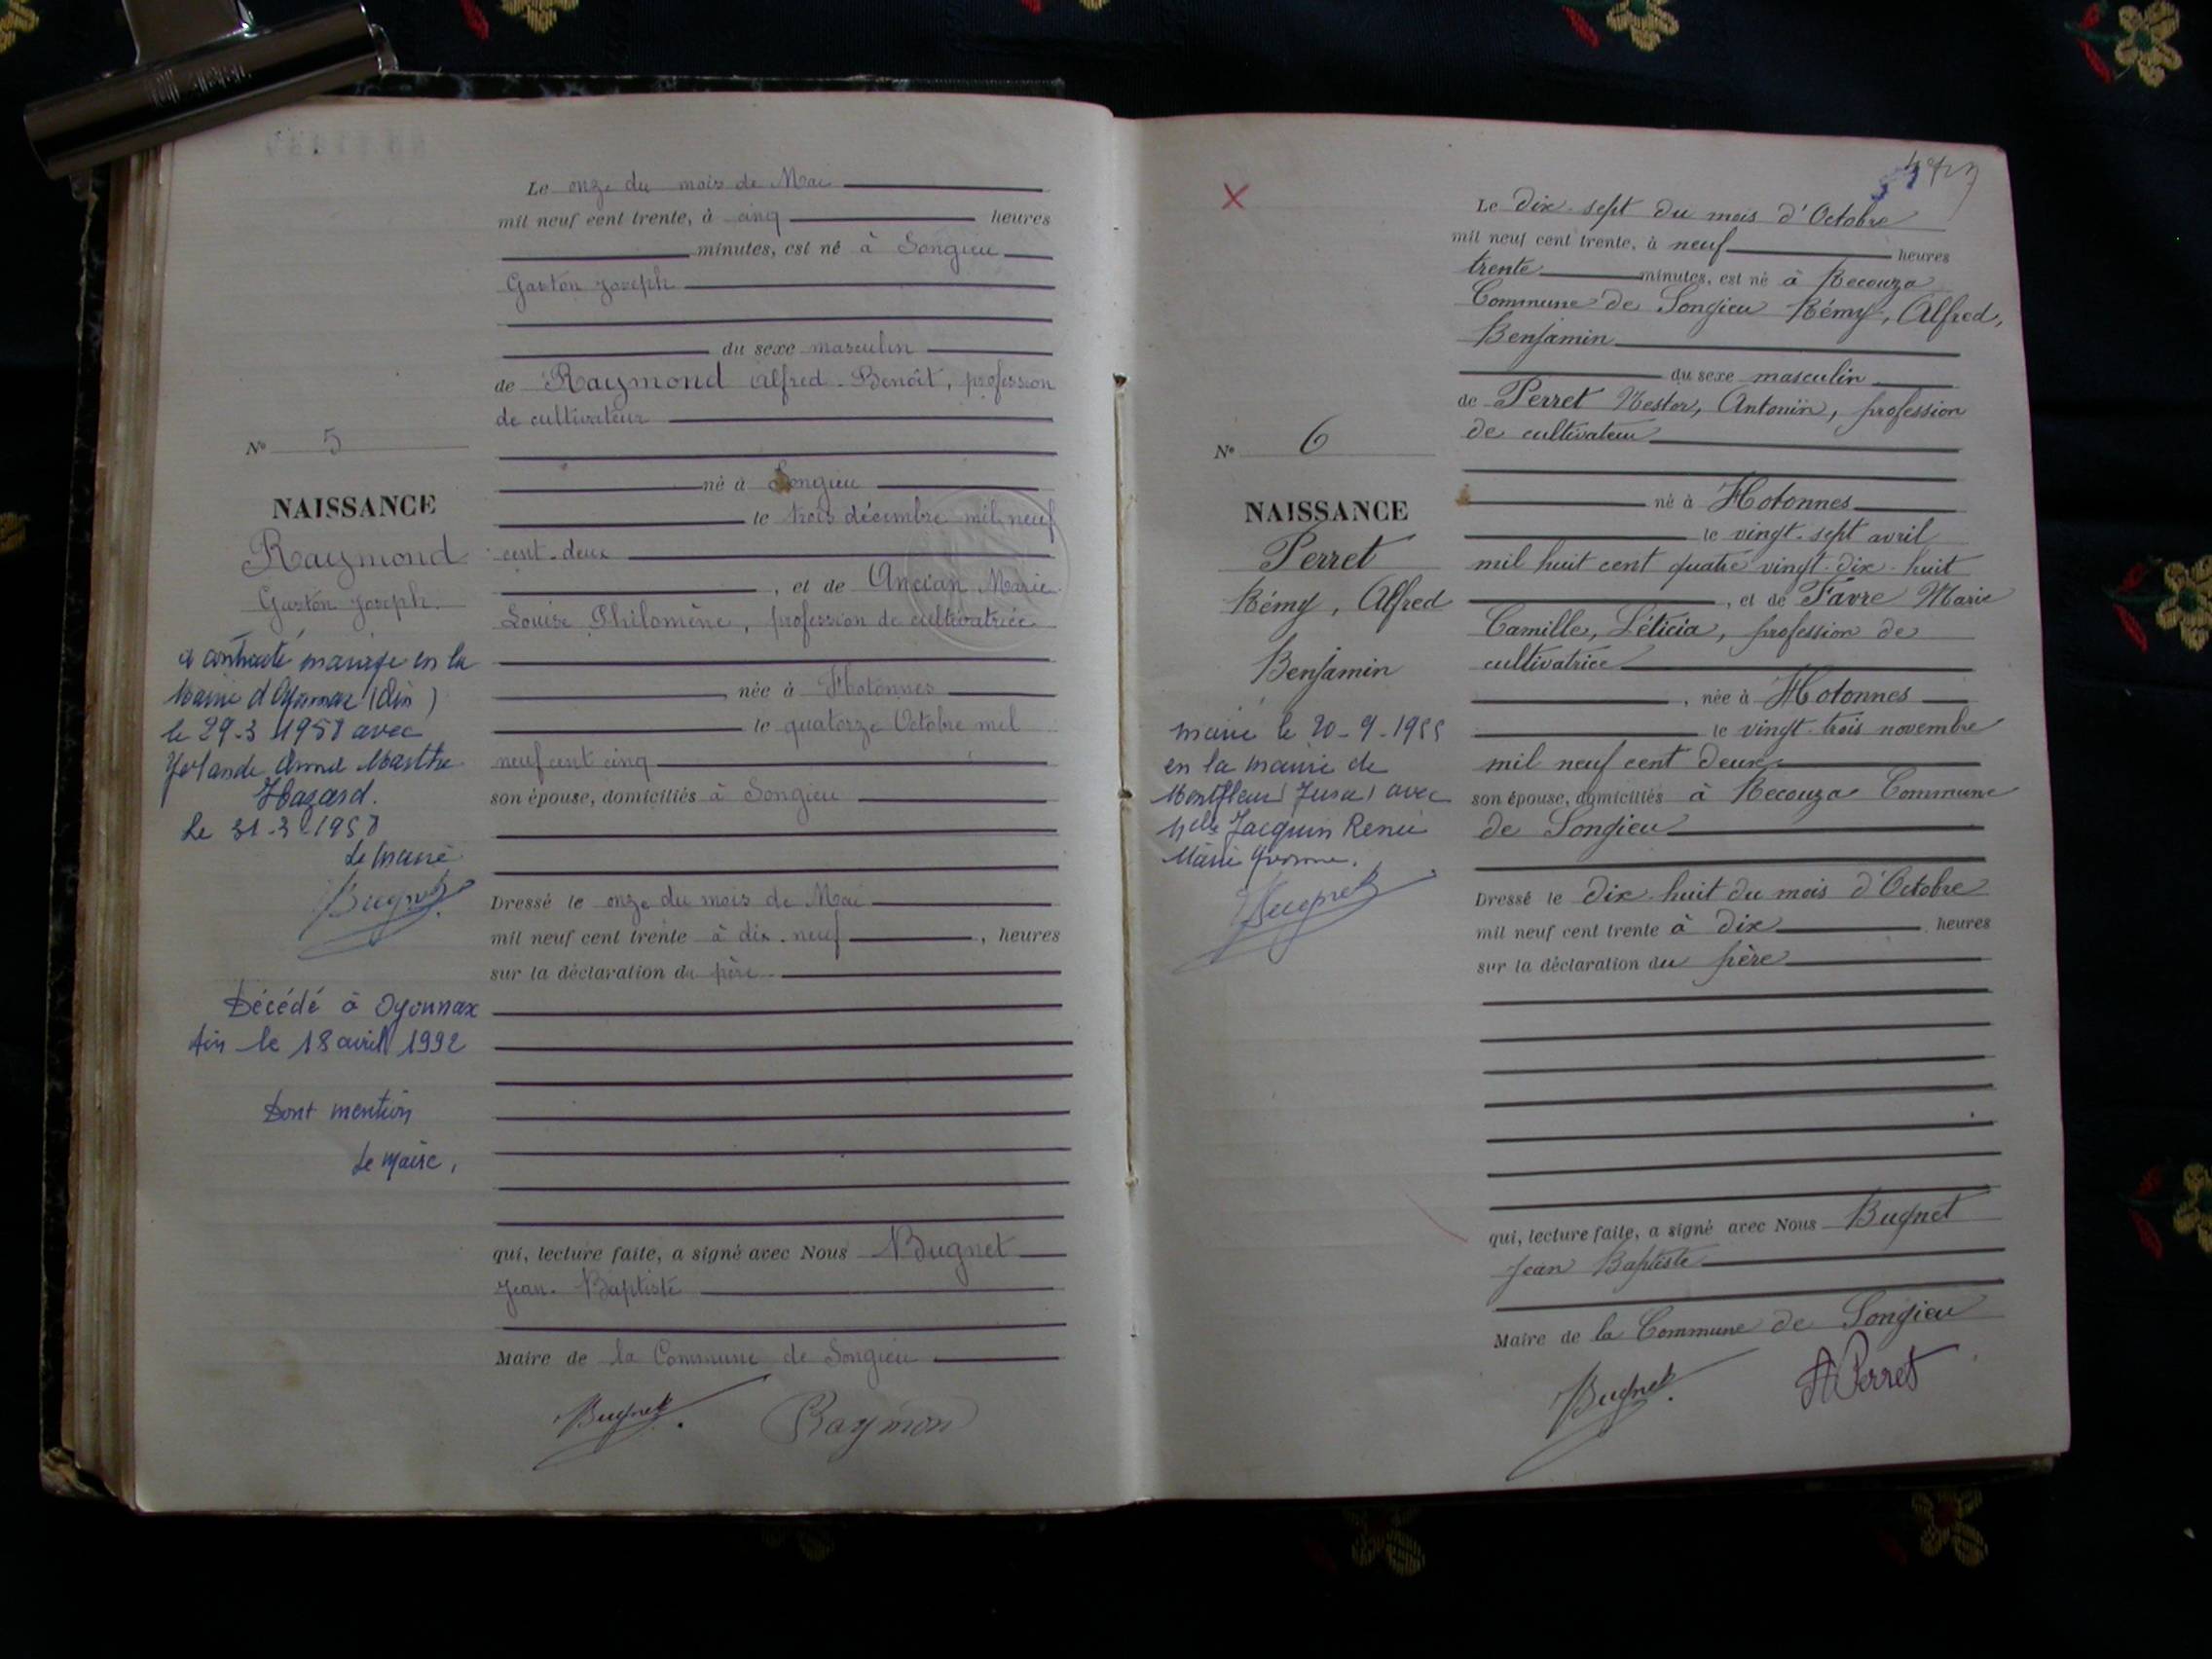 Le onze du mois de Mai
mil neuf cent trente, à cinq heures
minutes, est né à Songieu
Gaston Joseph
du sexe masculin
de Raymond Alfred-Benoît, profession
de cultivateur
né à Songieu
le trois décembre mil neuf
cent-deux
, et de Ancian Marie
Louise Philomène, profession de cultivatrice
, née à Hotonnes
le quatorze Octobre mil
neuf cent cinq
son épouse, domiciliés à Songieu
Dressé le onze du mois de Mai
mil neuf cent trente à dix-neuf , heures
sur la déclaration du père
qui, lecture faite, a signé avec Nous Bugnet
Jean-Baptiste
Maire de la Commune de Songieu
Bugnet
Raymon
No 5
NAISSANCE
Raymond
Gaston Joseph.
a contracté mariage en la
Mairie d'Oyonnax (Ain)
le 29-3 1958 avec
Yolande Marthe
Hazard.
Le 31-3-1958
Le maire
Bugnet
Décédé à Oyonnax
Ain le 18 avril 1992
Dont mention
Le Maire,
Le dix-sept du mois d'Octobre
mil neuf cent trente, à neuf heures
trente minutes, est né à Recouza
Commune de Songieu Rémy, Alfred,
Benjamin
du sexe masculin
de Perret Nestor, Antonin, profession
de cultivateur
né à Hotonnes
le vingt-sept avril
mil huit cent quatre vingt-dix-huit
, et de Favre Marie
Camille, Léticia, profession de
cultivatrice
, née à Hotonnes
le vingt-trois novembre
mil neuf cent deux
son épouse, domiciliés à Recouza Commune
de Songieu
Dressé le dix-huit du mois d'Octobre
mil neuf cent trente à dix heures
sur la déclaration du père
qui, lecture faite, a signé avec Nous Bugnet
Jean Baptiste
Maire de la Commune de Songieu
Bugnet
A Perret
No 6
NAISSANCE
Perret
Rémy, Alfred
Benjamin
marié le 20-9-1955
en la mairie de
Montfleur (Jura) avec
Melle Jacquin Renée
Marie Yvonne.
Bugnet